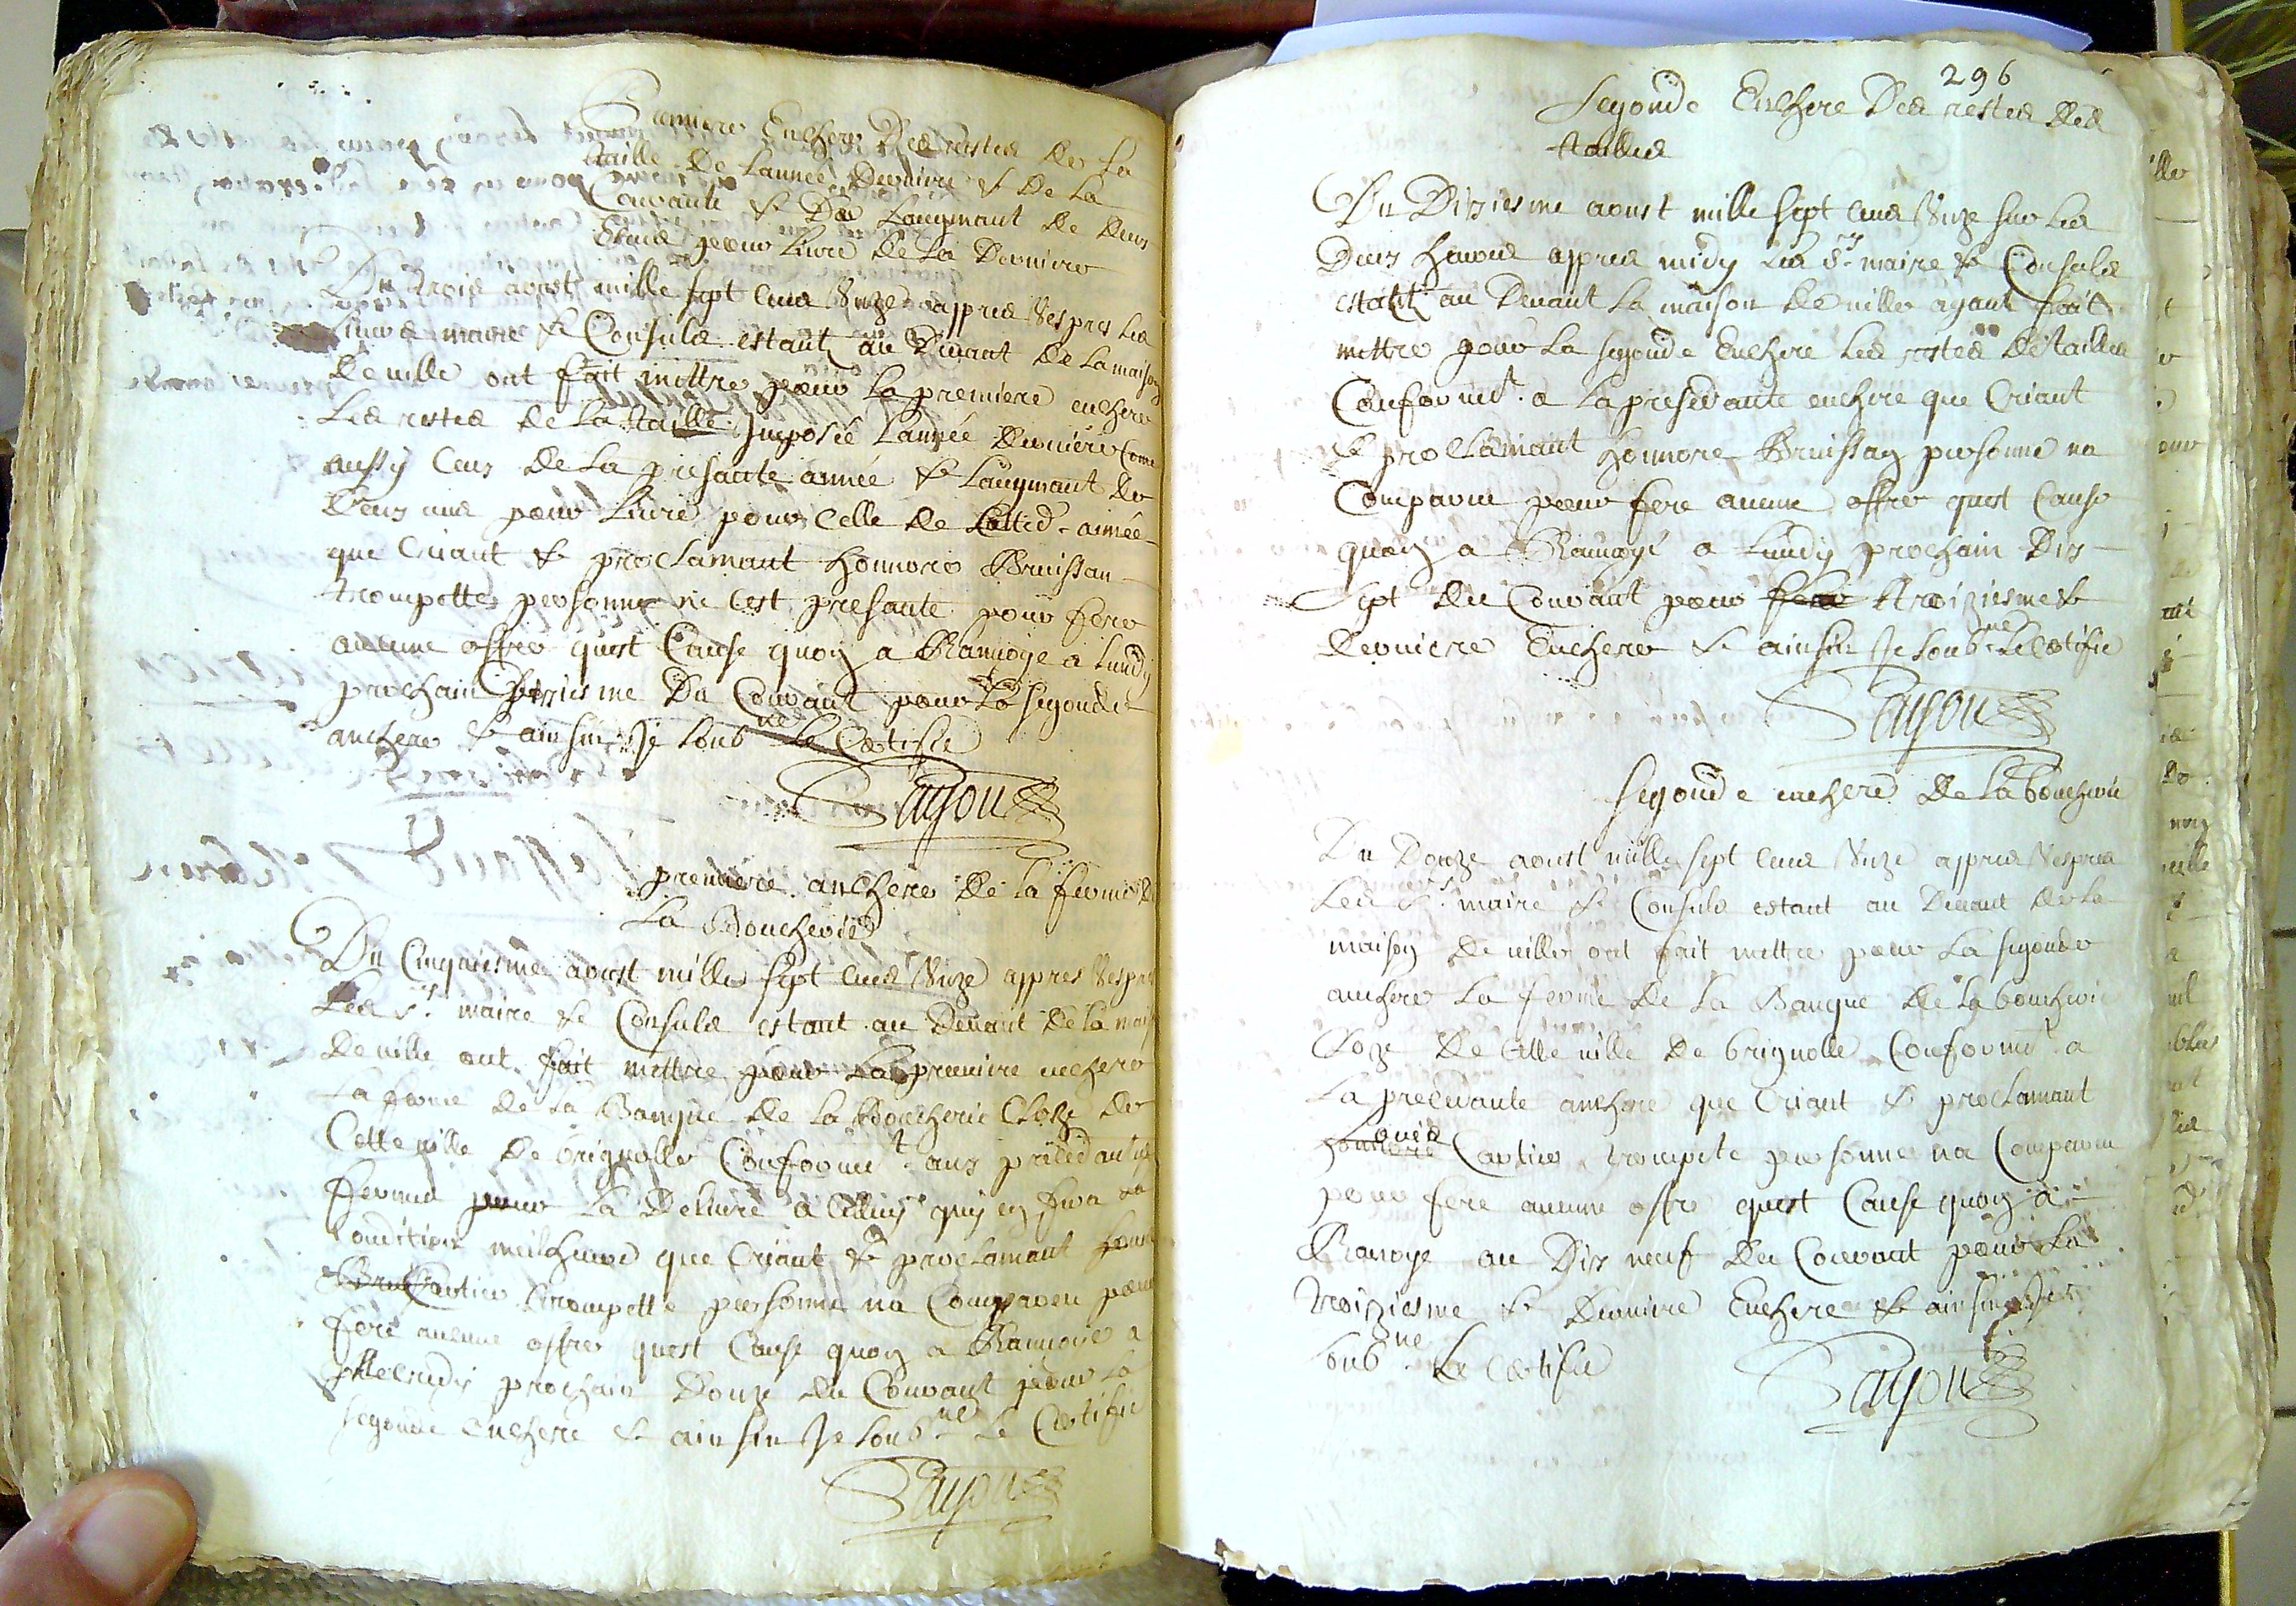 premiere Enchere Des restes de la
taille De Lannee Derniere & De La
Courante & Du Laugmant De deus
pour livre De La Derniere
Du trois aoust mille sept cens Unze appres Vespres Les
sieurs maire & Consuls estant au Devant De La maison
De ville ont fait mettre pour La premiere enchere
Les restes De La taille Imposée Lannée Derniere Come
aussy Ceus De La presante année & Laugmant de
Deus pour Livre pour Celle De année
que Criant & proclamant honnore Bruissan
trompette personne ne cest presante pour fere
aucune offre quest Cause quoy a Ranvoye a Lundy
prochain Disiesme Du Courant pour La segonde
anchere & ainsin Je soubne Le Certifie
Payon
premiere anchere De la ferme De
La Boucherie
Du Cinquiesme aoust mille sept cens Unze appres Vespres
Les Srs maire & Consuls estant au Devant De La
De ville ont fait mettre pour La premiere enchere
La ferme De La Banque De La Boucherie Cloze De
Cette ville De brignolle Conformt aus precedantes
fermes pour La Delivre a Celluy quy en fera La
Condition meilheure que Criant & proclamant
Cartier trompette personne na Comparu pour
fere aucune offre quest Cause quoy a Ranvoye a
Mecredy prochain Douze du Courant pour La
segonde Enchere & ainsin Je soubne Le Certifie
Payon
296
Segonde Enchere Des restes Des
tailles
Du Disiesme aoust mille sept cens Unze sur Les
Deus heures appres midy Les Srs maire & Consuls
estant au Devant La maison De ville ayant fait
mettre pour La segonde Enchere Les restes De tailles
Conformt a La presedante enchere que Criant
& proclamant honnore Bruissan personne na
Comparu pour fere aucune offre quest Cause
quoy a Ranvoye a Lundy prochain Dis
Sept du Courant pour troiziesme &
Derniere Enchere & ainsin Je soubne Le Certifie
Payon
segonde enchere De La boucherie
Du Douze aoust mille sept cens Unze appres Vespres
Les Srs maire & Consuls estant au Devant De La
maison De ville ont fait mettre pour La segonde
anchere La ferme De La Banque De La boucherie
Cloze De Cette ville De brignolle Conformt a
La precedante anchere que Criant & proclamant
Louis
honnore Cartier trompete personne na Comparu
pour fere aucune offre quest Cause quoy a
Ranvoye au Dis neuf Du Courant pour La
troiziesme & Derniere Enchere & ainsin Je
soubne Le Certifie
Payon